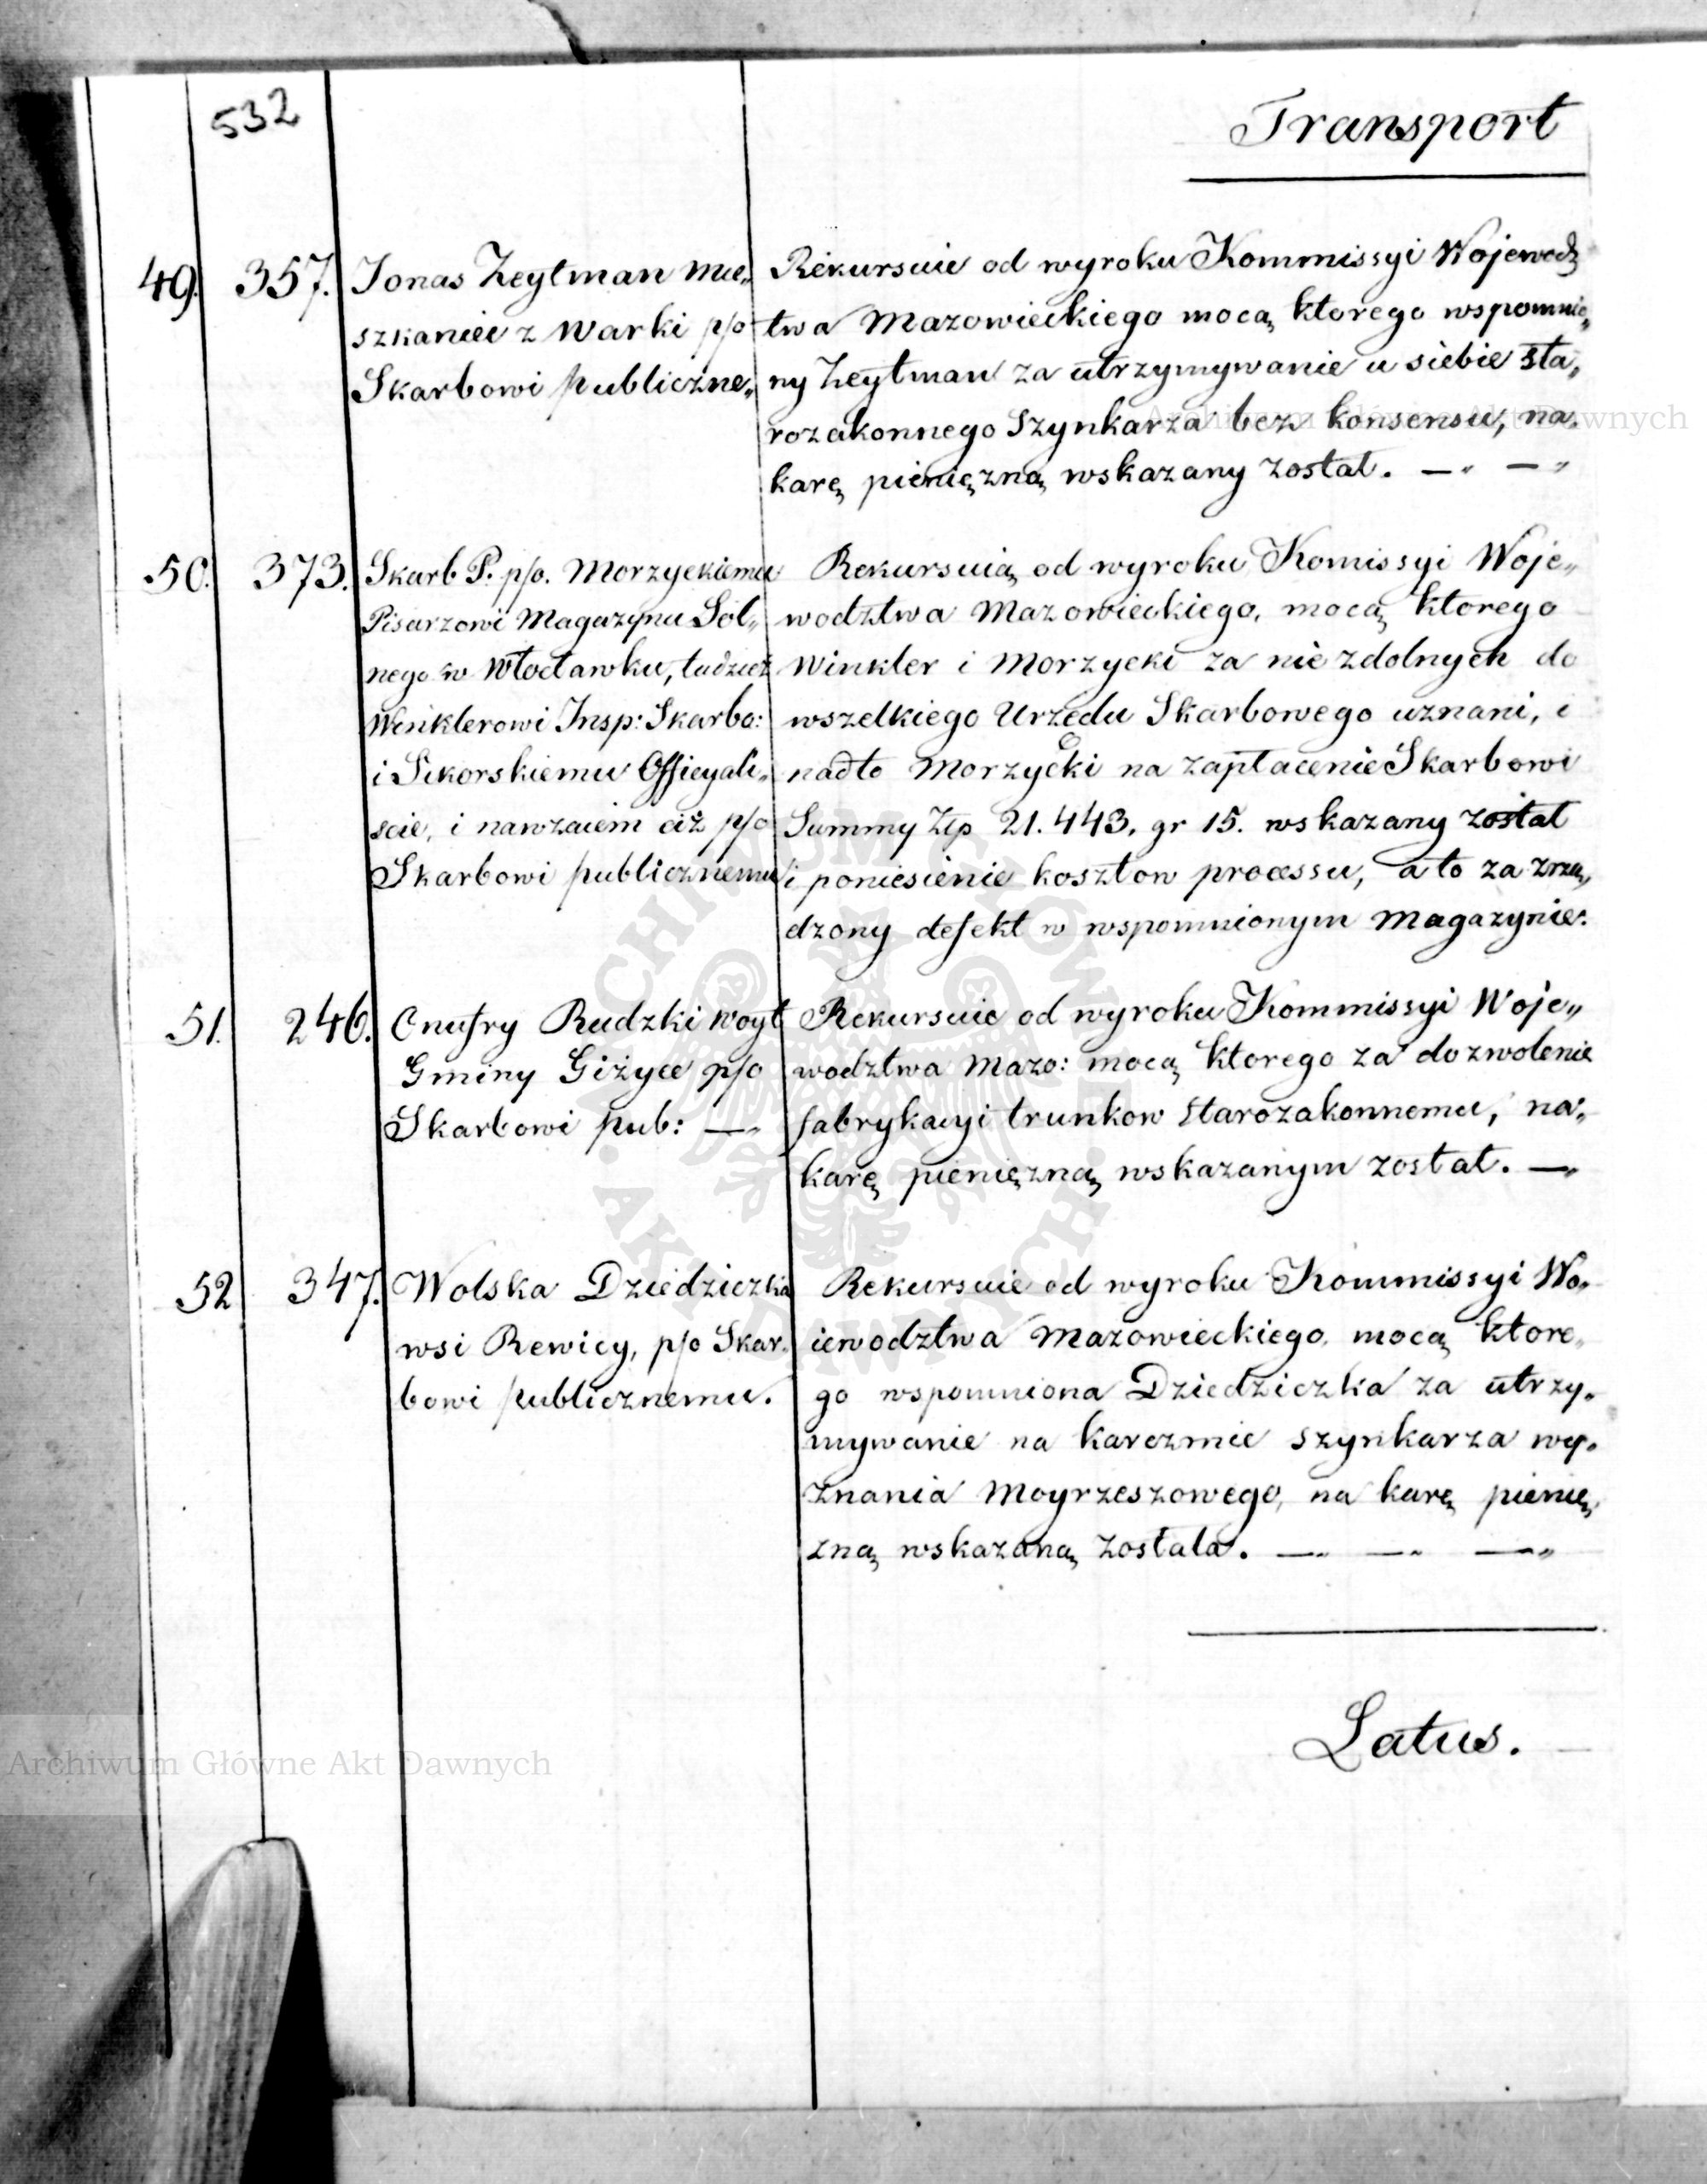 532
Transport
49. 357. Jonas Zeytman mie„
szkaniec z Warki p/o
Skarbowi publiczne„
Rekursuie od wyroku Kommissyi Wojewodz
twa Mazowieckiego mocą ktorego wspomnio„
ny Zeytman za utrzymywanie u siebie sta„
rozakonnego Szynkarza bez konsensu, na„
karę pieniężną wskazany został. —„ —„
50. 373. Skarb P. p/o. Morzyckiemu
Pisarzowi Magazynu Sol„
nego w Włocławku, tudzież
Winklerowi Insp: Skarbo:
i Sikorskiemu Officyali„
scie, i nawzaiem ciż p/o
Skarbowi publicznemu
Rekursuią od wyroku Komissyi Woje„
wodztwa Mazowieckiego, mocą ktorego
Winkler i Morzycki za niezdolnych do
wszelkiego Urzędu Skarbowego uznani, i
nadto Morzycki na zapłacenie Skarbowi
Summy Złp 21.443. gr 15. wskazany został
i poniesienie kosztow processu, a to za zrzą„
dzony defekt w wspomnionym Magazynie.
51. 246. Onufry Rudzki Woyt
Gminy Giżyce p/o
Skarbowi pub: —„
Rekursuie od wyroku Kommissyi Woje„
wodztwa Mazo: mocą ktorego za dozwolenie
fabrykacyi trunkow starozakonnemu, na„
karę pieniężną wskazanym został. —„
52 347. Wolska Dziedziczka
wsi Rewicy, p/o Skar„
bowi publicznemu.
Rekursuie od wyroku Kommissyi Wo„
iewodztwa Mazowieckiego, mocą ktore„
go wspomniona Dziedziczka za utrzy„
mywanie na karczmie szynkarza wy„
znania Moyrzeszowego, na karę pienię„
żną wskazaną została. —„ —„ —„
Latus.
Archiwum Główne Akt Dawnych
Archiwum Główne Akt Dawnych
ARCHIWUM GŁÓWNE AKT DAWNYCH